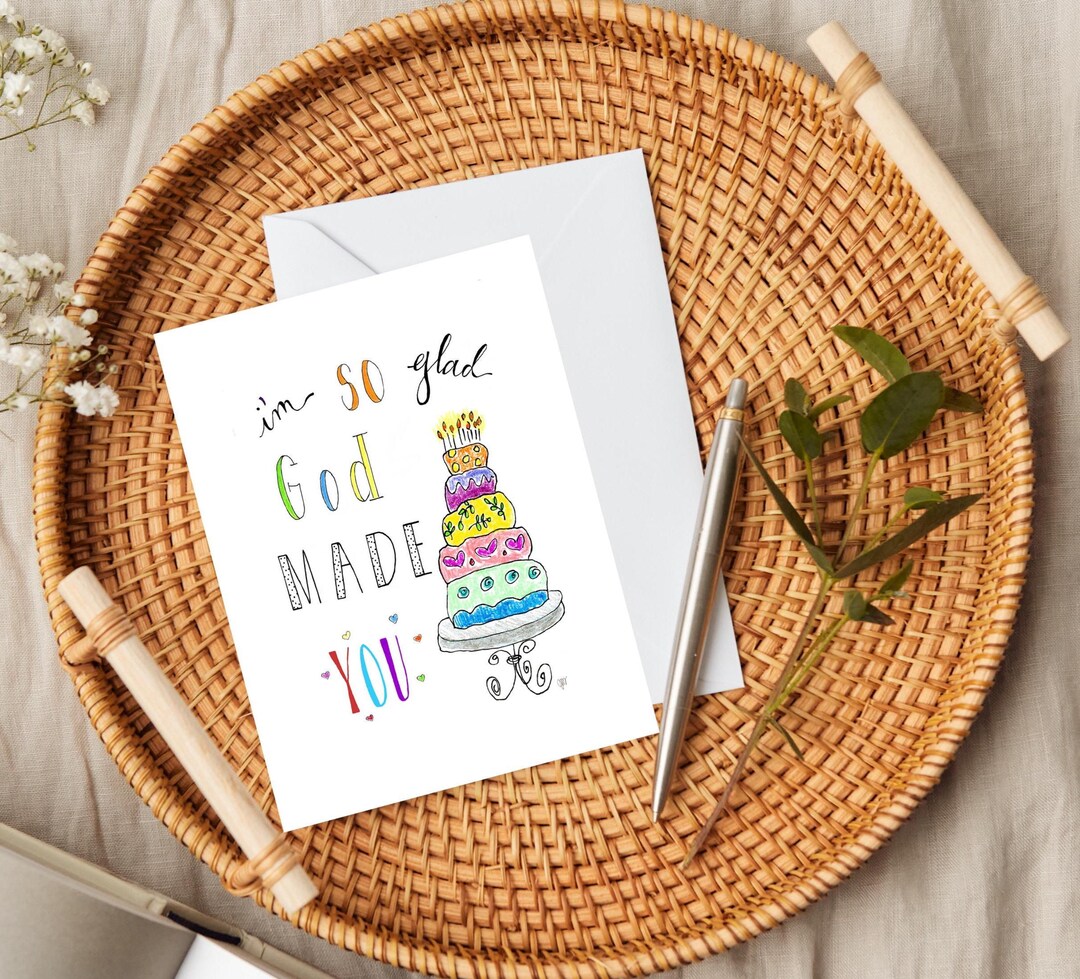 i'm SO glad
God
MADE
YOU